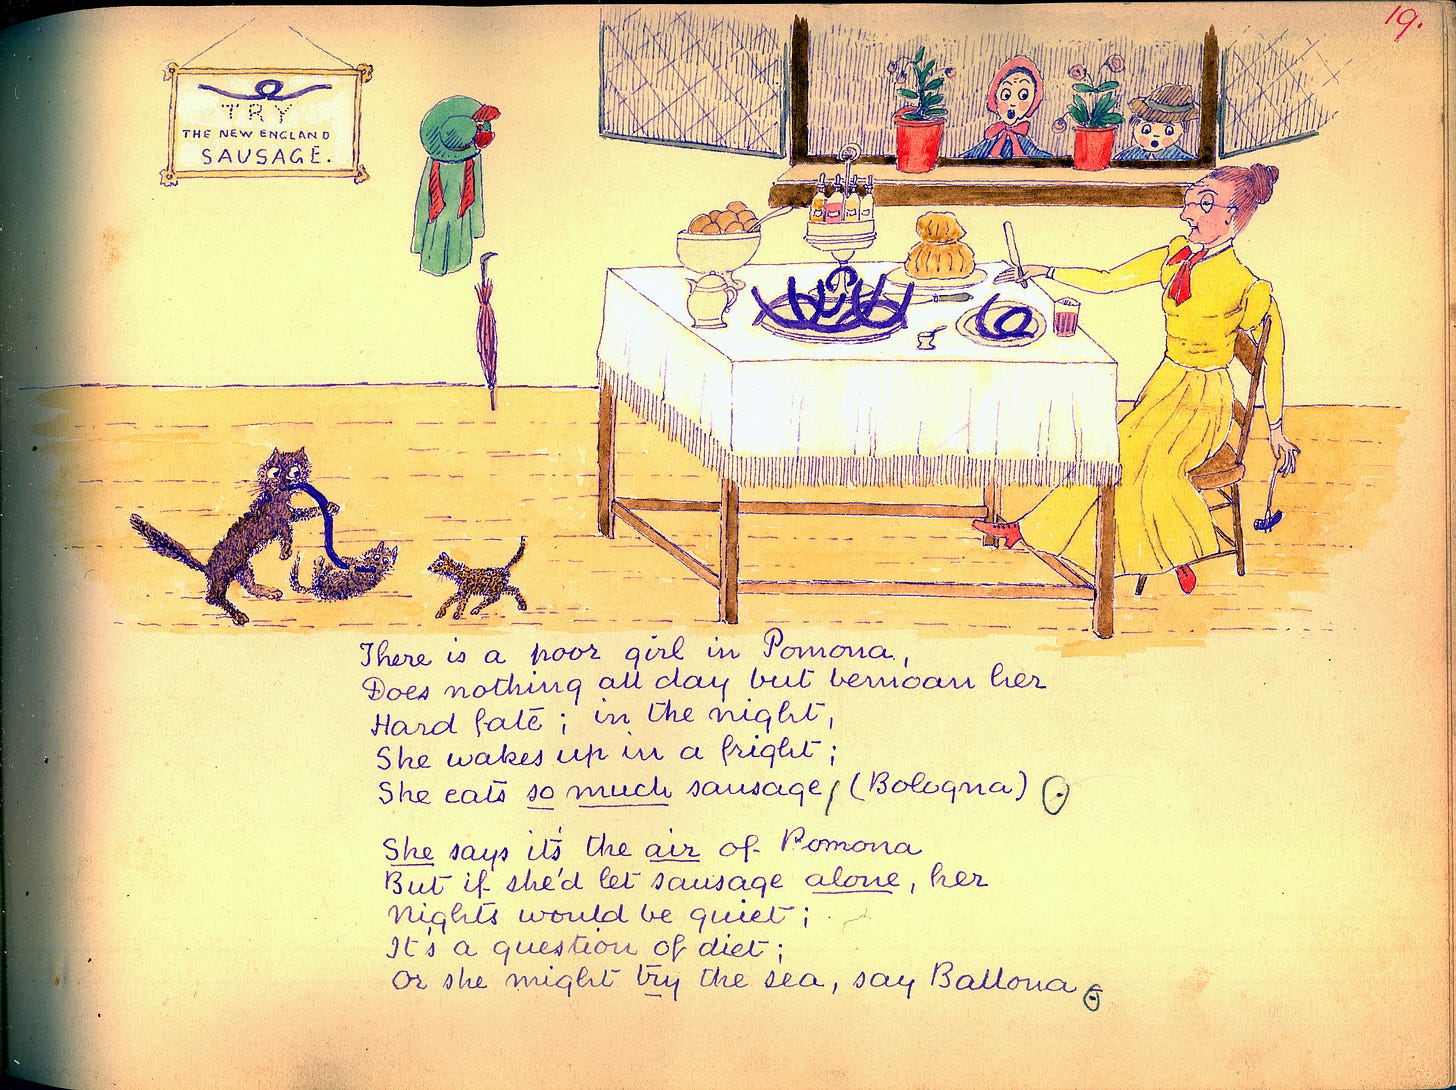 19.
TRY
THE NEW ENGLAND
SAUSAGE.
There is a poor girl in Pomona,
Does nothing all day but bemoan her
Hard fate; in the night,
She wakes up in a fright;
She eats so much sausage, (Bologna).
She says it's the air of Pomona
But if she'd let sausage alone, her
Nights would be quiet;
It's a question of diet;
Or she might try the sea, say Ballona.